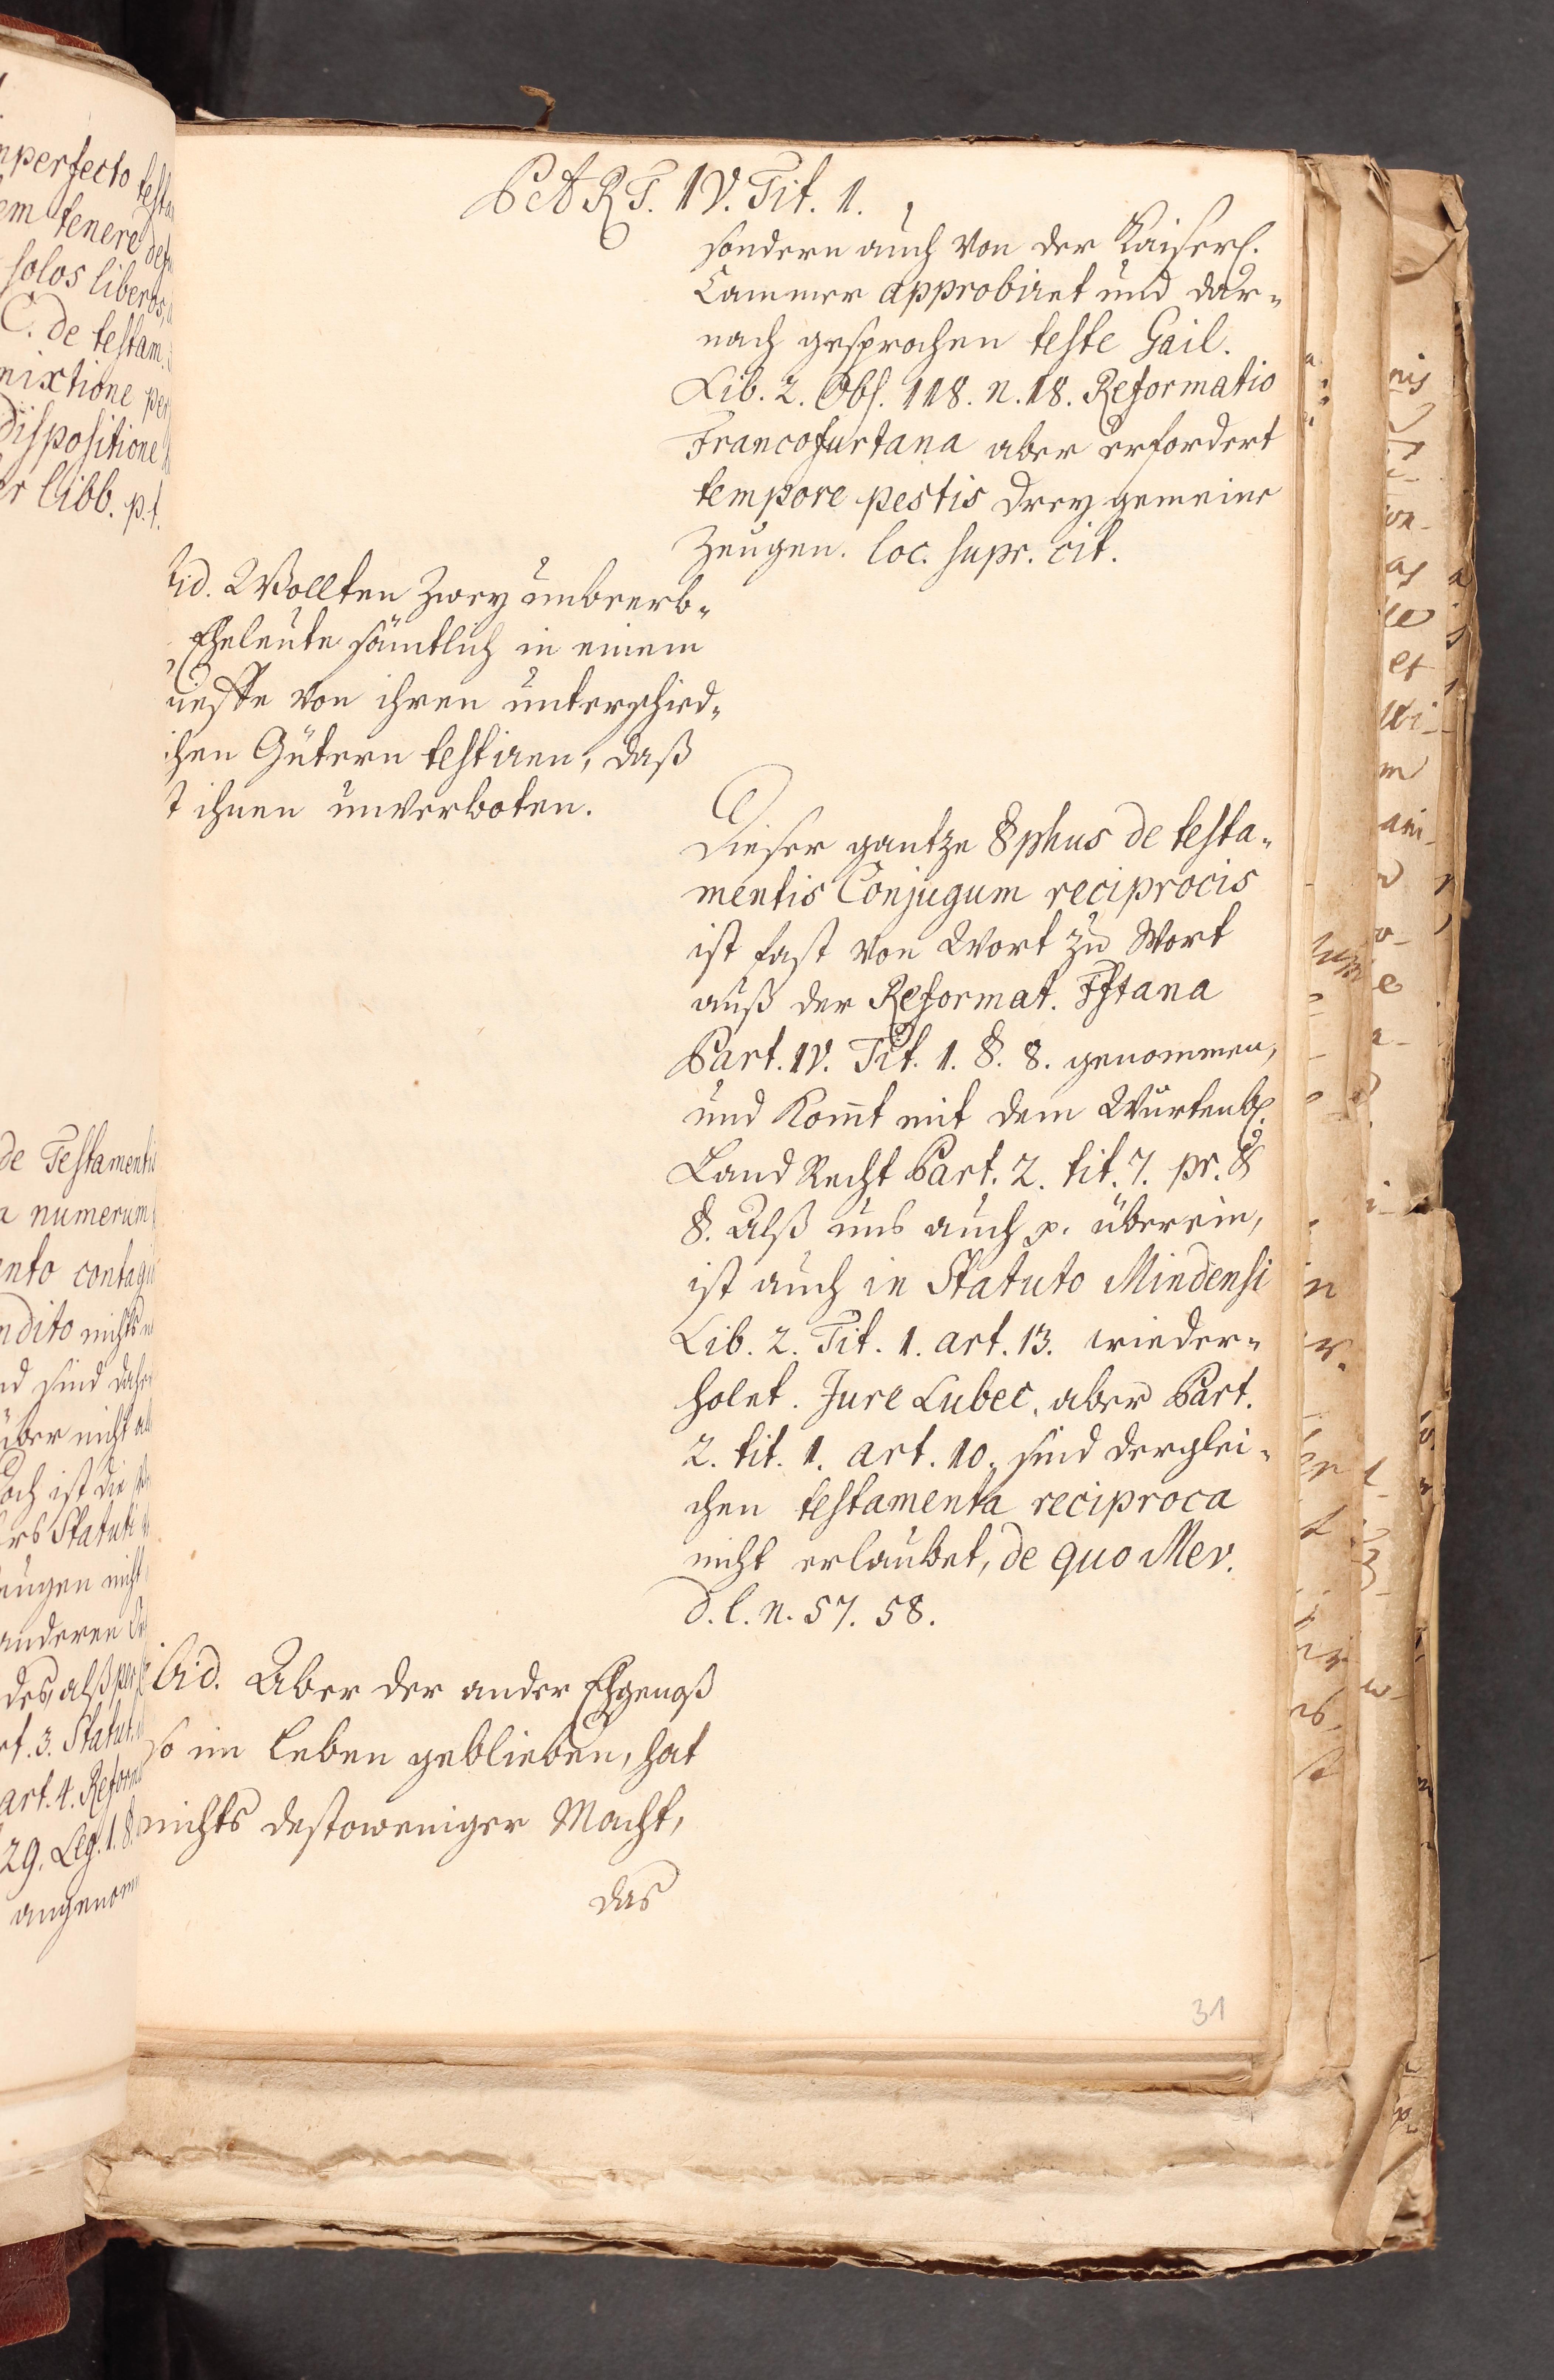 PART. IV. Tit. 1.
sondern auch von der Kaiserl.
Cammer approbiret und dar-
nach gesprochen teste Gail.
Lib. 2. Obs. 118. n. 18. Reformatio
Francofurtana aber erfordert
tempore pestis drey gemeine
Zeugen. loc. supr. cit.
id. Wollten Zwey unbeerb-
Eheleute sämtlich in einem
von ihren unterschied-
chen Gütern testiren, daß
t ihnen unverboten.
Dieser gantze §phus de testa-
mentis Conjugum reciprocis
ist fast von Wort zu Wort
auß der Reformat. Fftana
Part. IV. Tit. 1. §. 8. genommen,
und kom̄t mit dem Würtenb.
Land Recht Part. 2. tit. 7. pr. &
§. Alß uns auch p. überein,
ist auch in Statuto Mindensi
Lib. 2. Tit. 1. art. 13. wieder-
holet. Jure Lubec. aber Part.
2. tit. 1. art. 10. sind derglei-
chen testamenta reciproca
nicht erlaubet, de quo Mev.
d. l. n. 57. 58.
ibid. Aber der ander Ehgenoß
so im Leben geblieben, hat
nichts destoweniger Macht,
das
31
mperfecto testa
em tenere
solos liberos,
C. de testam.
mixtione per
Dispositione
er libb. p. t.
de Testamentis
a numerum
ento contagi
ndito nichts
nd sind daher
über nicht al
och ist die
ers Statuti
eugen nicht
anderen
des, alß per
rt. 3. Statut.
art. 4. Reform
29. Leg. 1. §.
angenom